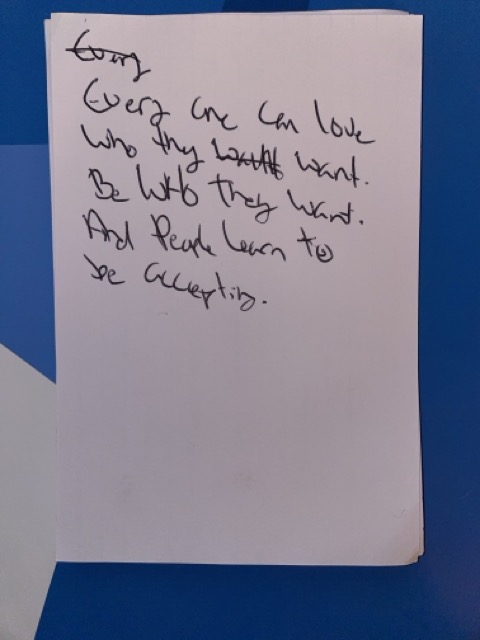 Every
Every one can love
who they want want.
Be who they want.
And People learn to
be accepting.